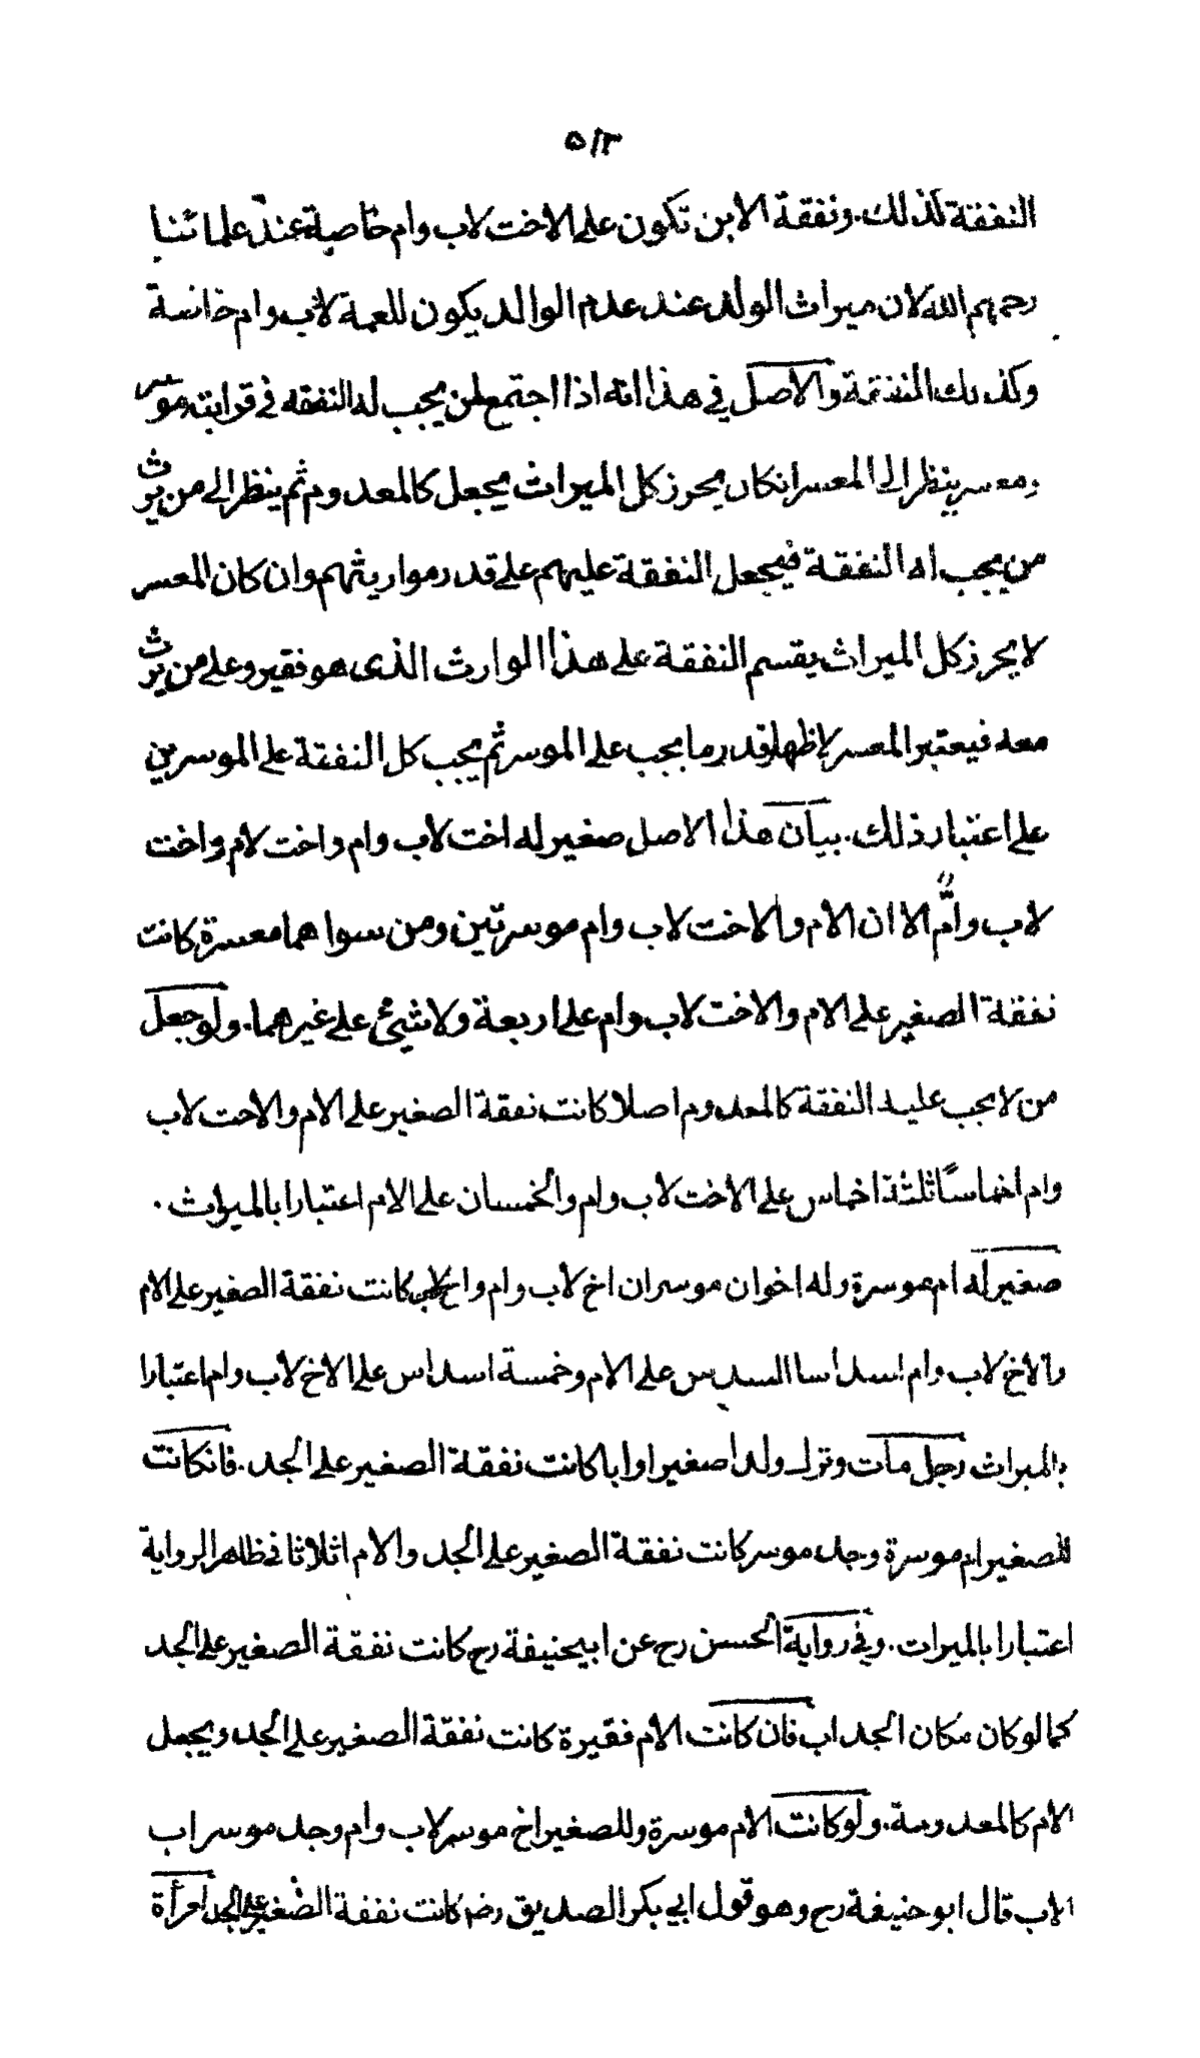 ٥١٣
النفقة لذلك. ونفقة الابن تكون على الاخت لاب وام خاصة عند علمائنا
رحمهم الله لان ميراث الولد عند عدم الوالد يكون للعمة لاب وام خاصة
وكذلك والاصل في هذا انه اذا اجتمع لمن يجب له النفقه في قرابته موسر
ومعسر ينظر الى المعسر انكان يحرز كل الميراث يجعل كالمعدوم ثم ينظر الى من يرث
من يجب له النفقة فيجعل النفقة عليهم على قدر مواريثهم وان كان المعسر
لا يحرز كل الميراث يقسم النفقة على هذا الوارث الذى هو فقير وعلى من يرث
معه فيعتبر المعسر لاظهار قدر ما يجب على الموسر ثم يجب كل النفقة على الموسرين
على اعتبار ذلك. بيان هذا الاصل صغير له اخت لاب وام واخت لام واخت
لاب وامٌّ الا ان الام والاخت لاب وام موسرتين ومن سواهما معسرة كانت
نفقة الصغير على الام والاخت لاب وام على اربعة ولا شيئ على غيرهما. ولو جعل
من لا يجب عليه النفقة كالمعدوم اصلا كانت نفقة الصغير على الام والاخت لاب
وام اخماسًا ثلثة اخماس على الاخت لاب وام والخمسان على الام اعتبارا بالميراث.
صغير له ام موسرة وله اخوان موسران اخ لاب وام واخ لاب كانت نفقة الصغير على الام
والاخ لاب وام اسداسا السدس على الام وخمسة اسداس على الاخ لاب وام اعتبارا
بالميراث رجل مات وترك ولدا صغيرا وابا كانت نفقة الصغير على الجد. فانكانت
للصغير ام موسرة وجد موسر كانت نفقة الصغير على الجد والام اثلاثا في ظاهر الرواية
اعتبارا بالميراث. وفي رواية الحسن رح عن ابيحنيفة رح كانت نفقة الصغير على الجد
كما لو كان مكان الجد اب فان كانت الام فقيرة كانت نفقة الصغير على الجد ويجعل
الام كالمعدومة. ولو كانت الام موسرة وللصغير اخ موسر لاب وام وجد موسر اب
الاب قال ابو حنيفة رح وهو قول ابي بكر الصديق رضه كانت نفقة الصغير على الجد امرأة